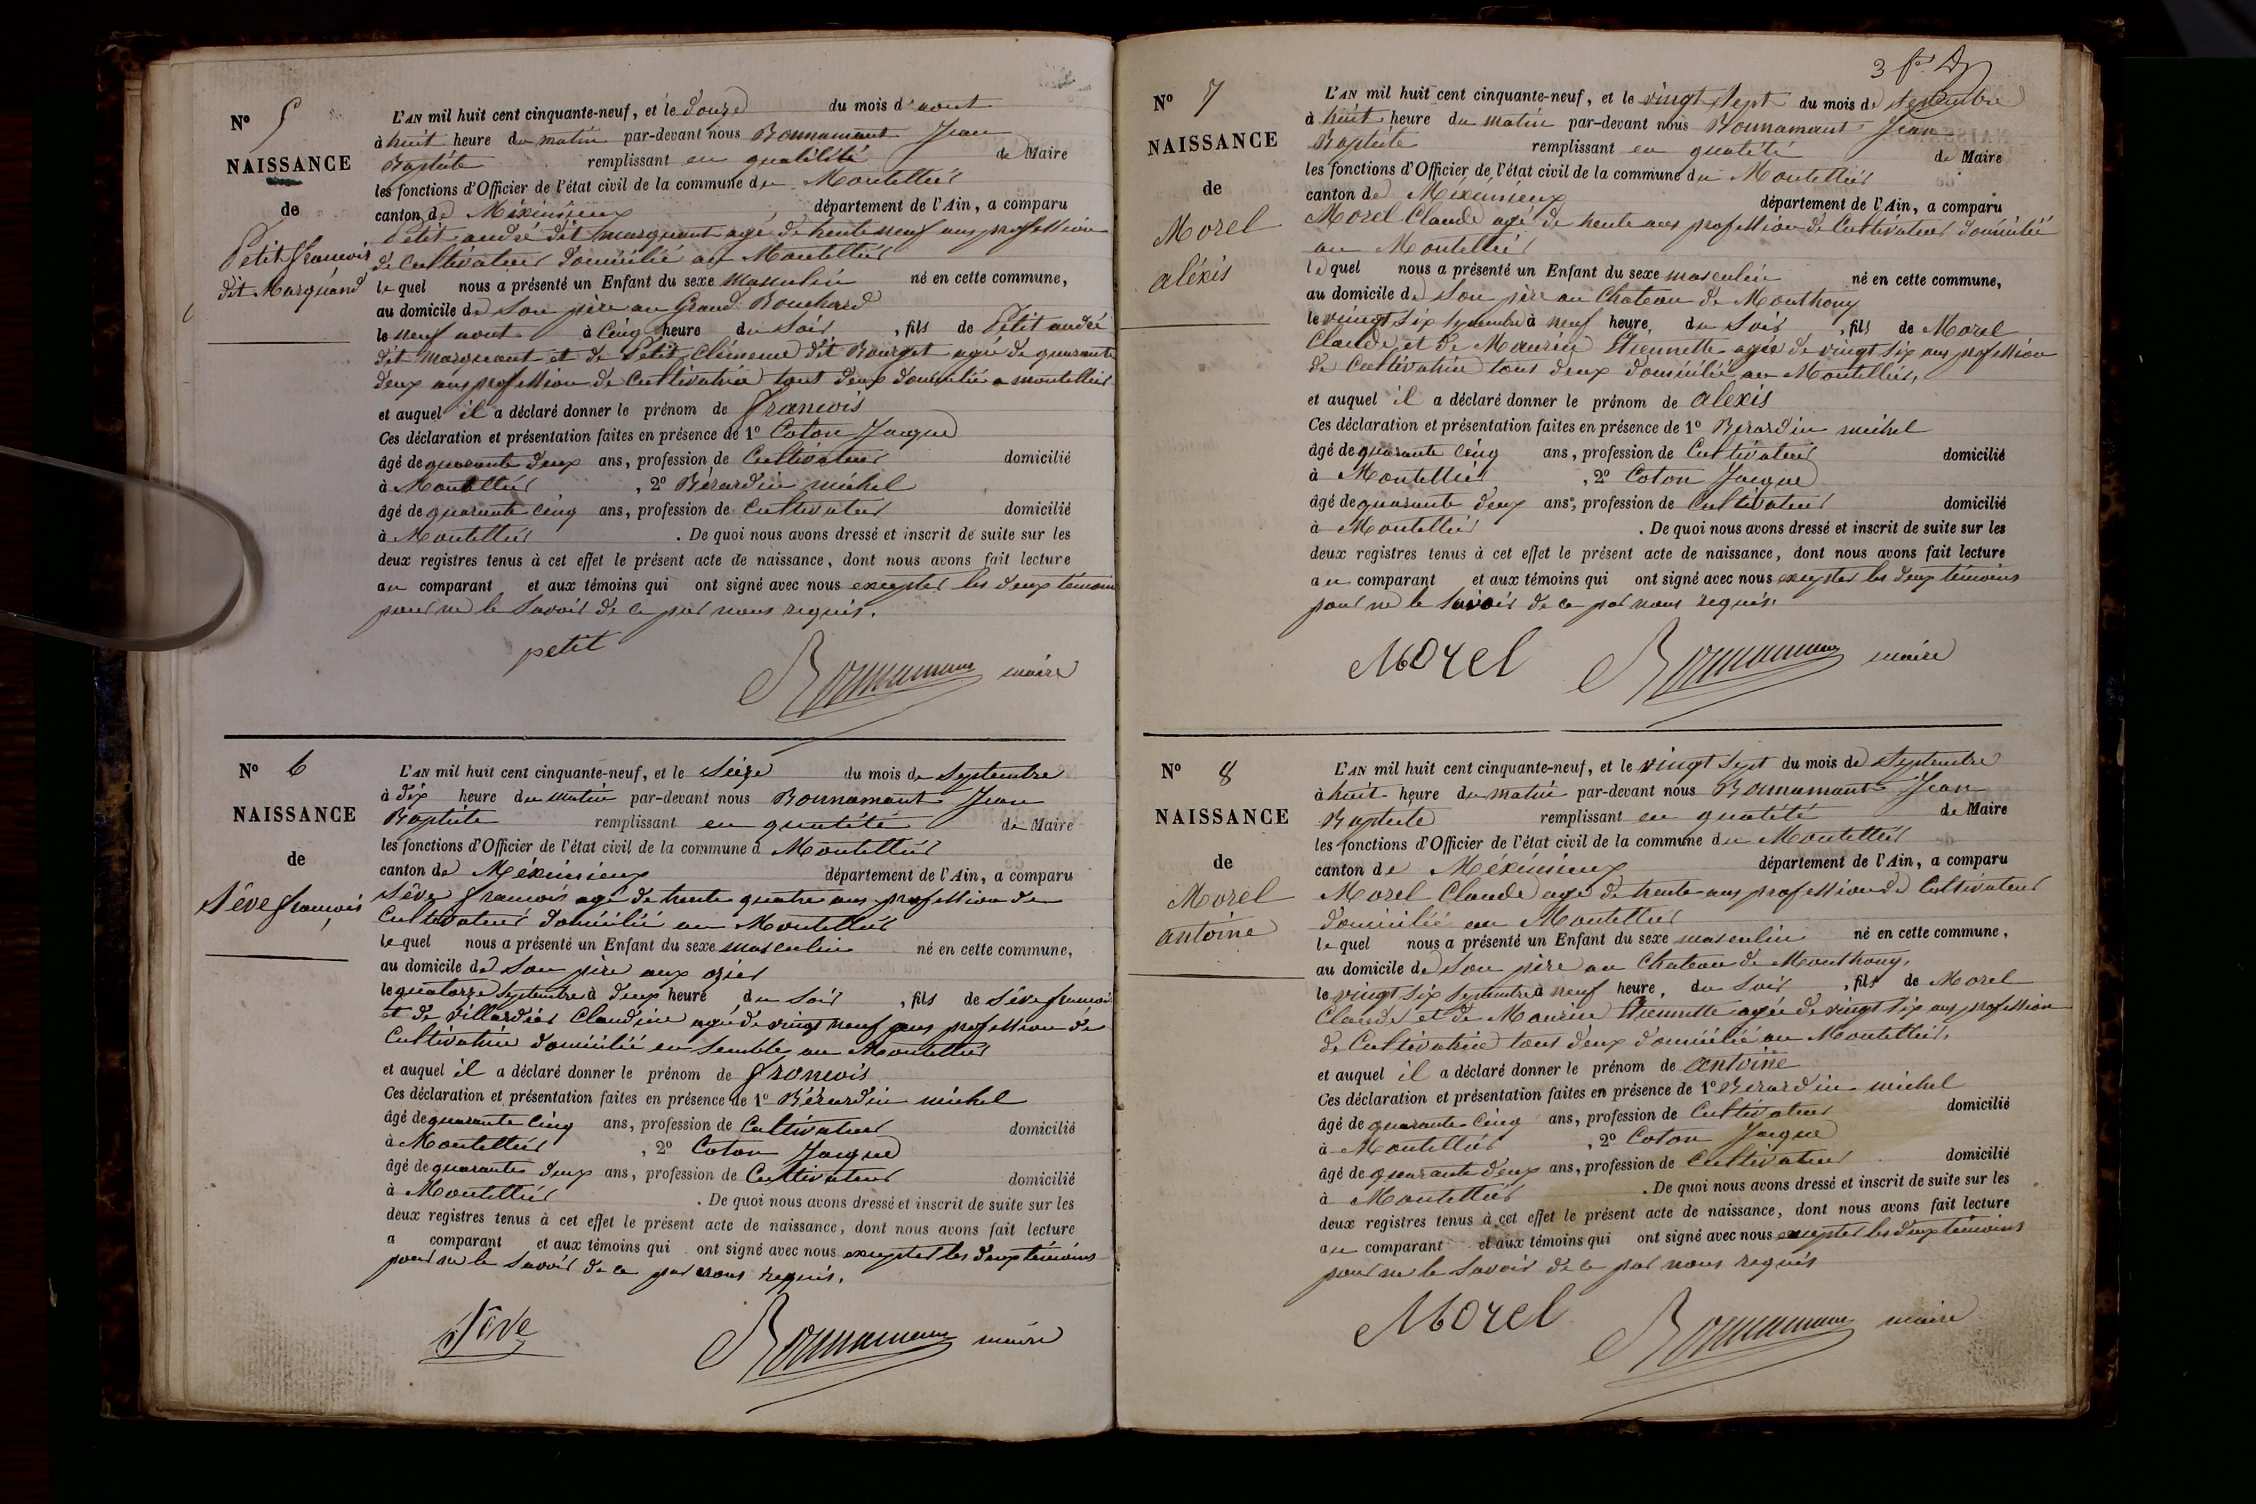 Nº 5
NAISSANCE
de
Petit francois
dit Marquand
L'AN mil huit cent cinquante-neuf, et le douze du mois d'aout
à huit heure du matin par-devant nous Bonnamant Jean
Baptiste remplissant en qualilité de Maire
les fonctions d'Officier de l'état civil de la commune du Montellier
canton de Méximieux département de l'Ain, a comparu
Petit andré dit marquant agé de trente neuf ans profession
de cultivateur domicilié au Montellier
lequel nous a présenté un Enfant du sexe masculin né en cette commune,
au domicile de Son père au Grand Bouchard
le neuf aout à Cinq heure du Soir, fils de Petit andré
dit marquant et de Petit Clémence dit Bourget agée de quarante
deux ans profession de Cultivatrice tout deux domicilié a montellier
et auquel il a déclaré donner le prénom de francois
Ces déclaration et présentation faites en présence de 1º Coton Jacque
âgé de quarante deux ans, profession de Cultivateur domicilié
à Montellier, 2º Bérardin michel
âgé de quarante cinq ans, profession de Cultivateur domicilié
à Montellier. De quoi nous avons dressé et inscrit de suite sur les
deux registres tenus à cet effet le présent acte de naissance, dont nous avons fait lecture
au comparant et aux témoins qui ont signé avec nous excepter les deux témoins
pour ne le Savoir de ce par nous requis.
petit
Bonnamant maire
Nº 6
NAISSANCE
de
Sêve francois
L'AN mil huit cent cinquante-neuf, et le Seize du mois de Septembre
à dix heure du matin par-devant nous Bonnamant Jean
Baptiste remplissant en qualité de Maire
les fonctions d'Officier de l'état civil de la commune à Montellier
canton de Méximieux département de l'Ain, a comparu
Sêve francois agé de trente quatre ans profession de
Cultivateur domicilié au Montellier
lequel nous a présenté un Enfant du sexe masculin né en cette commune,
au domicile de Son père aux ozier
le quatorze Septembre à deux heure du Soir, fils de Sêve francois
et de Villardier Claudine agé de vingt neuf ans profession de
Cultivatrice domicilié en semble au Montellier
et auquel il a déclaré donner le prénom de francois
Ces déclaration et présentation faites en présence de 1º Bérardin michel
âgé de quarante Cinq ans, profession de Cultivateur domicilié
à Montellier, 2º Coton Jacque
âgé de quarante deux ans, profession de Cultivateur domicilié
à Montellier. De quoi nous avons dressé et inscrit de suite sur les
deux registres tenus à cet effet le présent acte de naissance, dont nous avons fait lecture
a comparant et aux témoins qui ont signé avec nous excepter les deux témoins
pour ne le Savoir de ce par nous requis.
Sêve
Bonnamant maire
3
Nº 7
NAISSANCE
de
Morel
aléxis
L'AN mil huit cent cinquante-neuf, et le vingt Sept du mois de Septembre
à huit heure du matin par-devant nous Bonnamant Jean
Baptiste remplissant en qualité de Maire
les fonctions d'Officier de l'état civil de la commune du Montellier
canton de Méximieux département de l'Ain, a comparu
Morel Claude agé de trente ans profession de Cultivateur domicilié
au Montellier
lequel nous a présenté un Enfant du sexe masculin né en cette commune,
au domicile de Son père au Chateau de Monthouy
le vingt Six Septembre à neuf heure, du Soir, fils de Morel
Claude et de Maurin Etiennette agée de vingt Six ans profession
de Cultivatrice tout deux domicilié au Montellier,
et auquel il a déclaré donner le prénom de alexis
Ces déclaration et présentation faites en présence de 1º Berardin michel
âgé de quarante Cinq ans, profession de Cultivateur domicilié
à Montellier, 2º Coton Jacque
âgé de quarante deux ans, profession de Cultivateur domicilié
à Montellier. De quoi nous avons dressé et inscrit de suite sur les
deux registres tenus à cet effet le présent acte de naissance, dont nous avons fait lecture
au comparant et aux témoins qui ont signé avec nous excepter les deux témoins
pour ne le Savoir de ce par nous requis.
Morel
Bonnamant maire
Nº 8
NAISSANCE
de
Morel
antoine
L'AN mil huit cent cinquante-neuf, et le vingt Sept du mois de Septembre
à huit heure du matin par-devant nous Bonnamant Jean
Baptiste remplissant en qualité de Maire
les fonctions d'Officier de l'état civil de la commune du Montellier
canton de Méximieux département de l'Ain, a comparu
Morel Claude agé de trente ans profession de Cultivateur
domicilié au Montellier
lequel nous a présenté un Enfant du sexe masculin né en cette commune,
au domicile de Son père au Chateau de Monthouy,
le vingt Six Septembre à neuf heure, du Soir, fils de Morel
Claude et de Maurin Etiennette agée de vingt Six ans profession
de Cultivatrice tout deux domicilié au Montellier,
et auquel il a déclaré donner le prénom de antoine
Ces déclaration et présentation faites en présence de 1º Berardin michel
âgé de quarante Cinq ans, profession de Cultivateur domicilié
à Montellier, 2º Coton Jacque
âgé de quarante deux ans, profession de Cultivateur domicilié
à Montellier. De quoi nous avons dressé et inscrit de suite sur les
deux registres tenus à cet effet le présent acte de naissance, dont nous avons fait lecture
au comparant et aux témoins qui ont signé avec nous excepter les deux témoins
pour ne le Savoir de ce par nous requis
Morel
Bonnamant maire